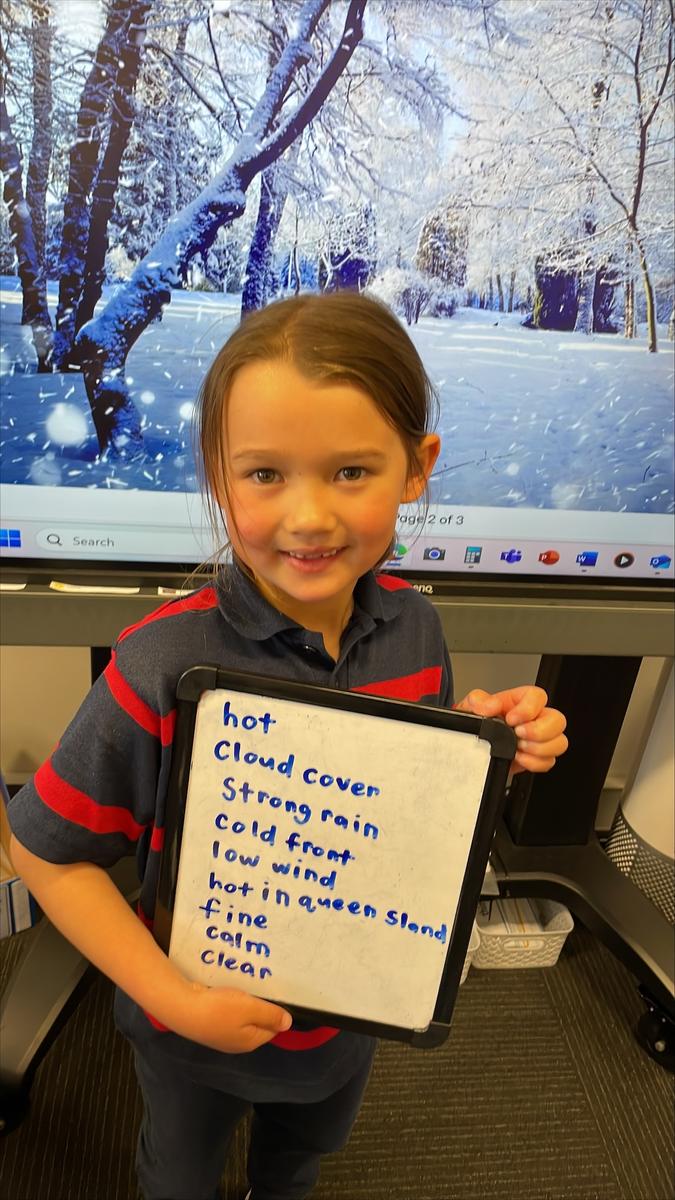 Page 2 of 3
Search
BenQ
hot
Cloud cover
Strong rain
cold front
low wind
hot in queen sland
fine
calm
clear